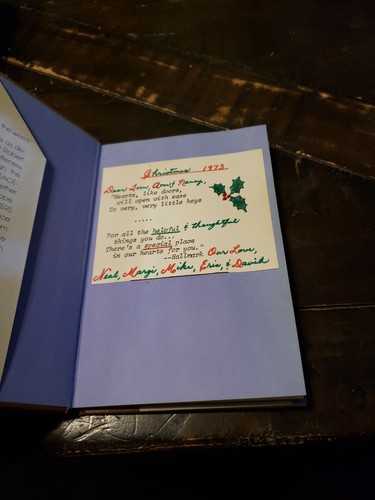 the word
Christmas 1973
Dear Tom, Ann & Nancy,
"Hearts, like doors,
will open with ease
To very, very little keys
.....
For all the helpful & thoughtful
things you do...
There's a special place
in our hearts for you."
--Hallmark Our Love,
Neal, Margi, Mike, Eric, & David